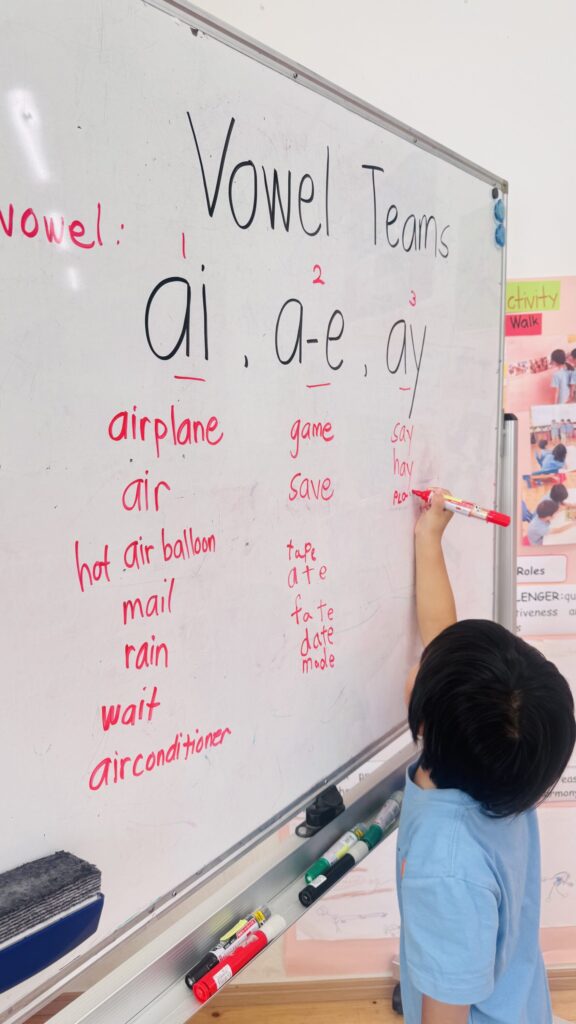 Vowel Teams
vowel:
1
2
3
ai, a-e, ay
airplane
air
hot air balloon
mail
rain
wait
airconditioner
game
save
tape
ate
fate
date
made
say
hay
pla
ctivity
Walk
Roles
LENGER:qu
tiveness a
s